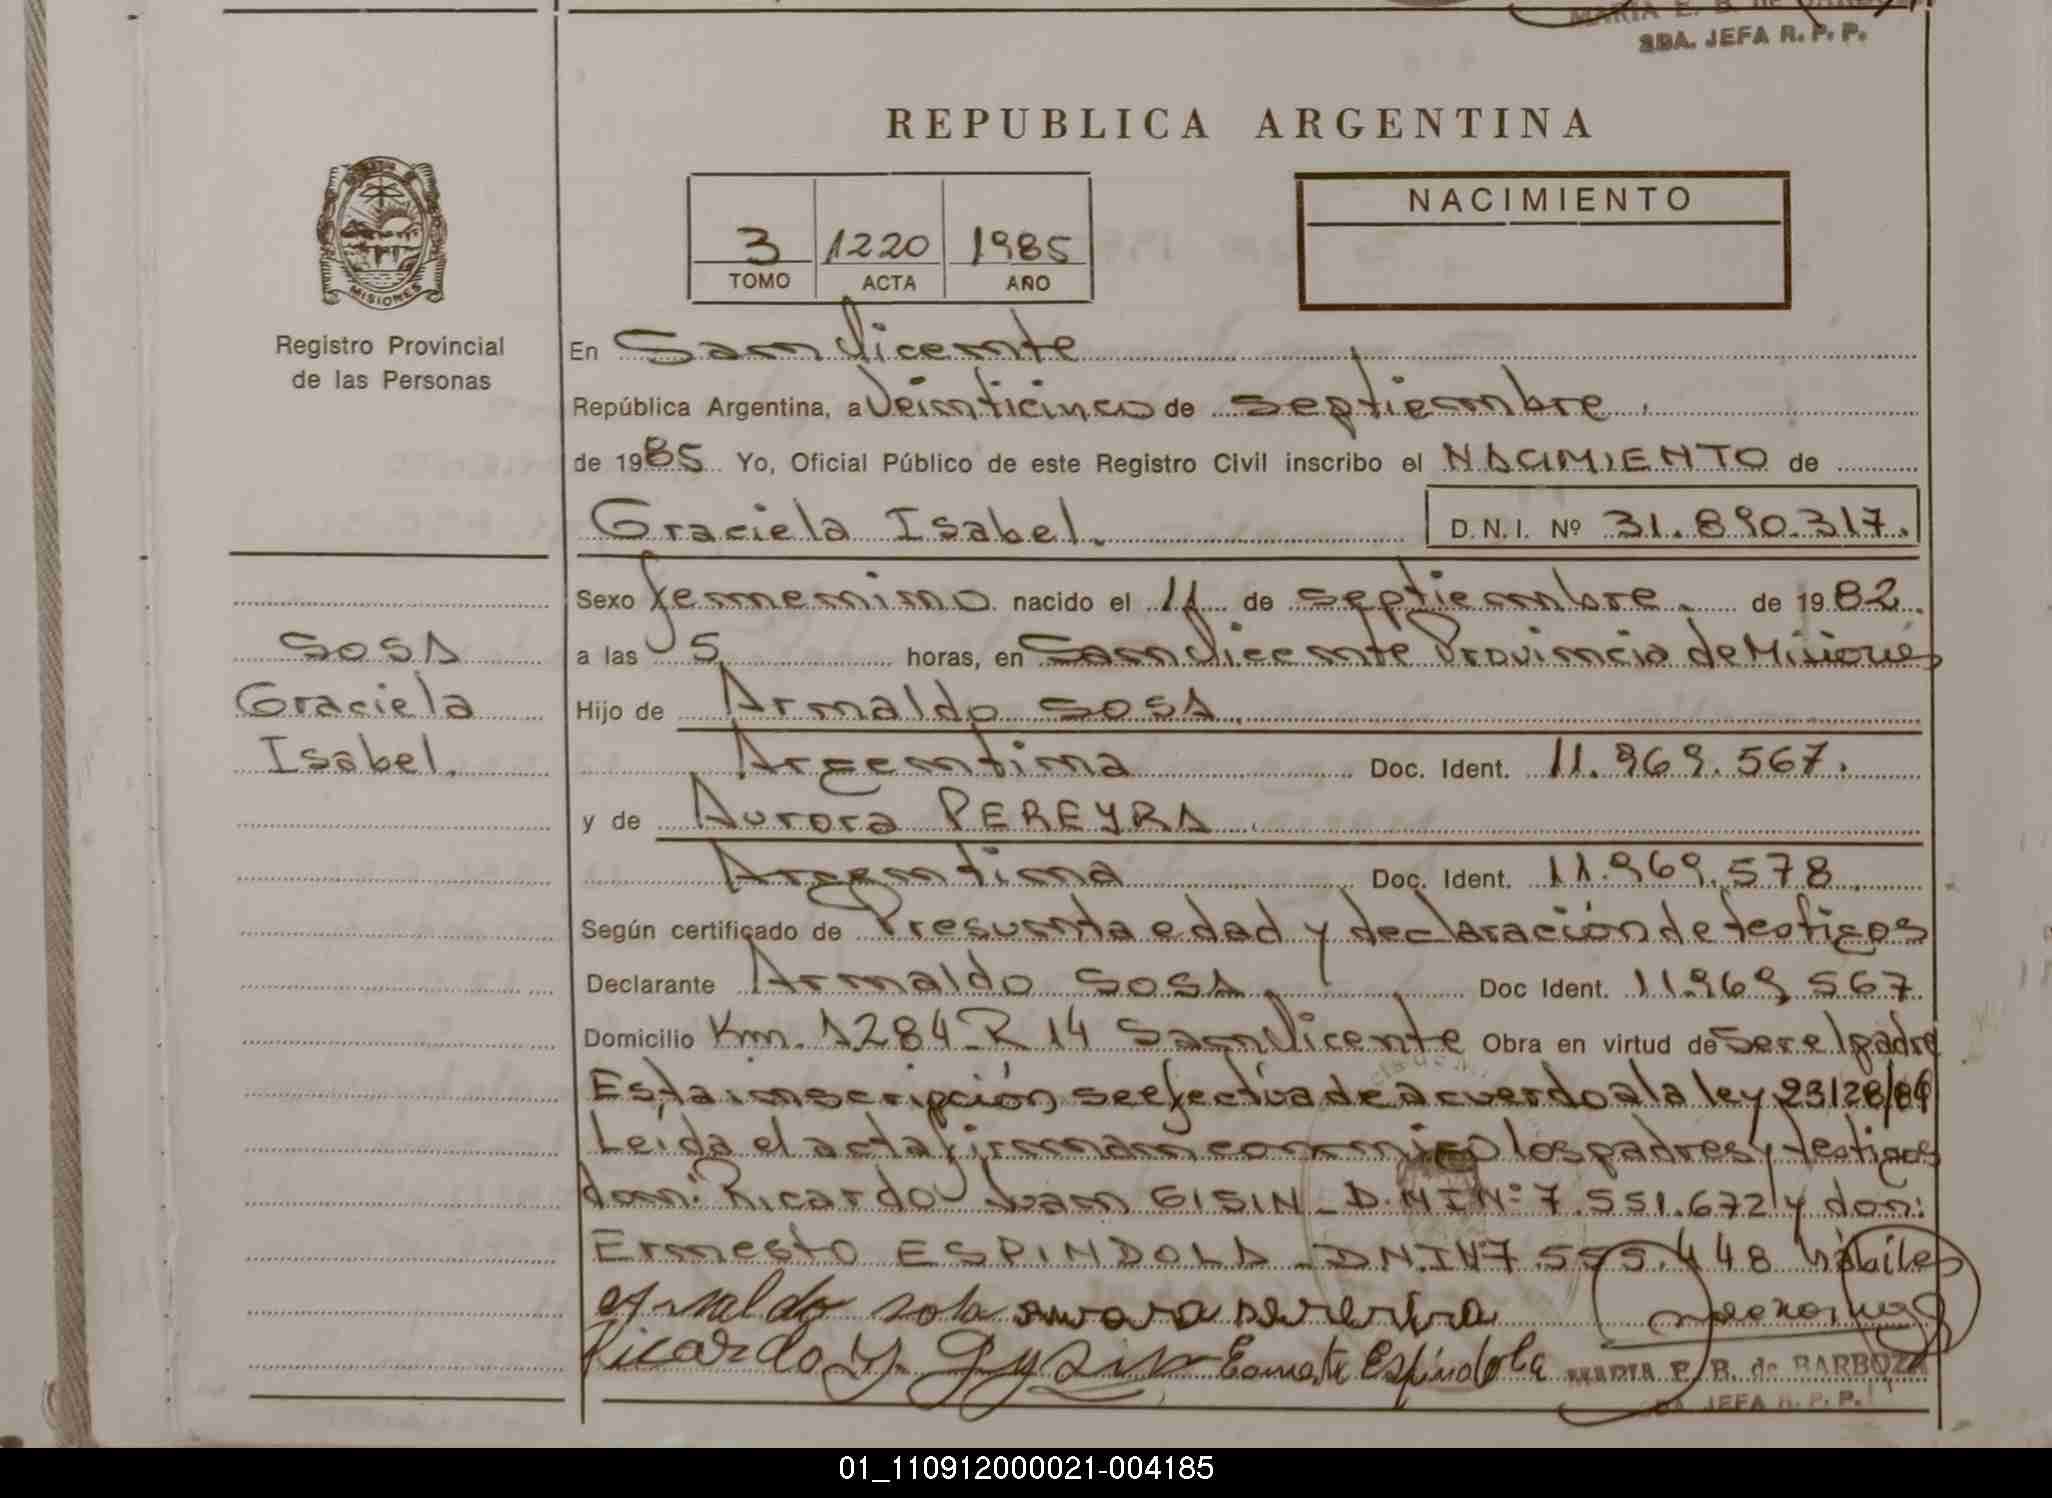 MARIA E. B. de BARBOZA
2DA. JEFA R. P. P.
REPUBLICA ARGENTINA
MISIONES
Registro Provincial
de las Personas
3 1220 1985
TOMO ACTA AÑO
NACIMIENTO
En San Vicente
República Argentina, a Veinticinco de septiembre
de 1985 Yo, Oficial Público de este Registro Civil inscribo el NACIMIENTO de
Graciela Isabel. D.N.I. Nº 31.890.317.
SOSA
Graciela
Isabel.
Sexo femenino nacido el 11 de septiembre de 1982.
a las 5 horas, en San Vicente Provincia de Misiones
Hijo de Arnaldo SOSA
Argentina Doc. Ident. 11.969.567.
y de Aurora PEREYRA
Argentina Doc. Ident. 11.969.578
Según certificado de Presunta edad y declaración de testigos
Declarante Arnaldo SOSA Doc Ident. 11.969.567
Domicilio Km. 1284 R 14 San Vicente Obra en virtud de Ser el padre
Esta inscripción se efectúa de acuerdo a la ley 23128/84
Leída el acta firman conmigo los padres y testigos
don: Ricardo Juan GISIN - D.N.I Nº 7.551.672 y don:
Ernesto ESPINDOLA - D.N.I Nº 7.555.448 hábiles
arnaldo sosa aurora pereyra
Ricardo J. Gysin Ernesto Espindola MARIA E. B. de BARBOZA
2DA. JEFA R. P. P.
01_110912000021-004185